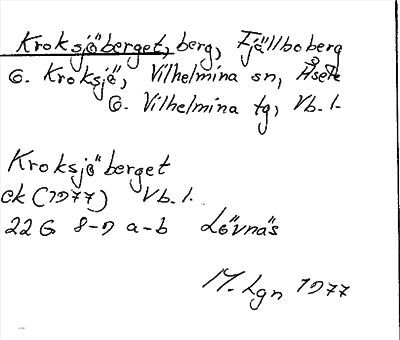 Kroksjöberget, berg, Fjällboberg
o. Kroksjö, Vilhelmina sn, Åsele
o. Vilhelmina tg, Vb. l.
Kroksjöberget
ek (1977) Vb. l.
22 G 8-9 a-b Lövnäs
M. Lgn 1977